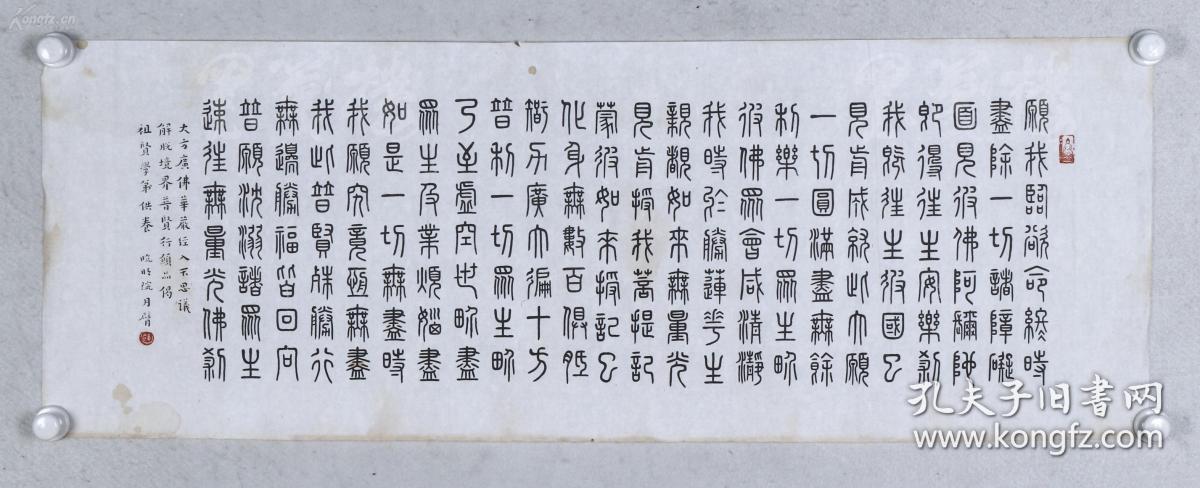 願我臨欲命終時
盡除一切諸障礙
面見彼佛阿彌陀
即得往生安樂剎
我既往生彼國已
見前成就此大願
一切圓滿盡無餘
利樂一切眾生界
彼佛眾會咸清瀞
我時於勝蓮華生
親覩如來無量光
見前授我菩提記
蒙彼如來授記已
化身無數百俱胝
智力廣大徧十方
普利一切眾生界
乃至虛空世界盡
眾生及業煩惱盡
如是一切無盡時
我願究竟恆無盡
我此普賢殊勝行
無邊勝福皆回向
普願沈溺諸眾生
速往無量光佛剎
大方廣佛華嚴經入不思議
解脫境界普賢行願品偈
祖賢學弟供養 晚晴院月臂
孔夫子旧书网
www.kongfz.com
Kongfz.cn